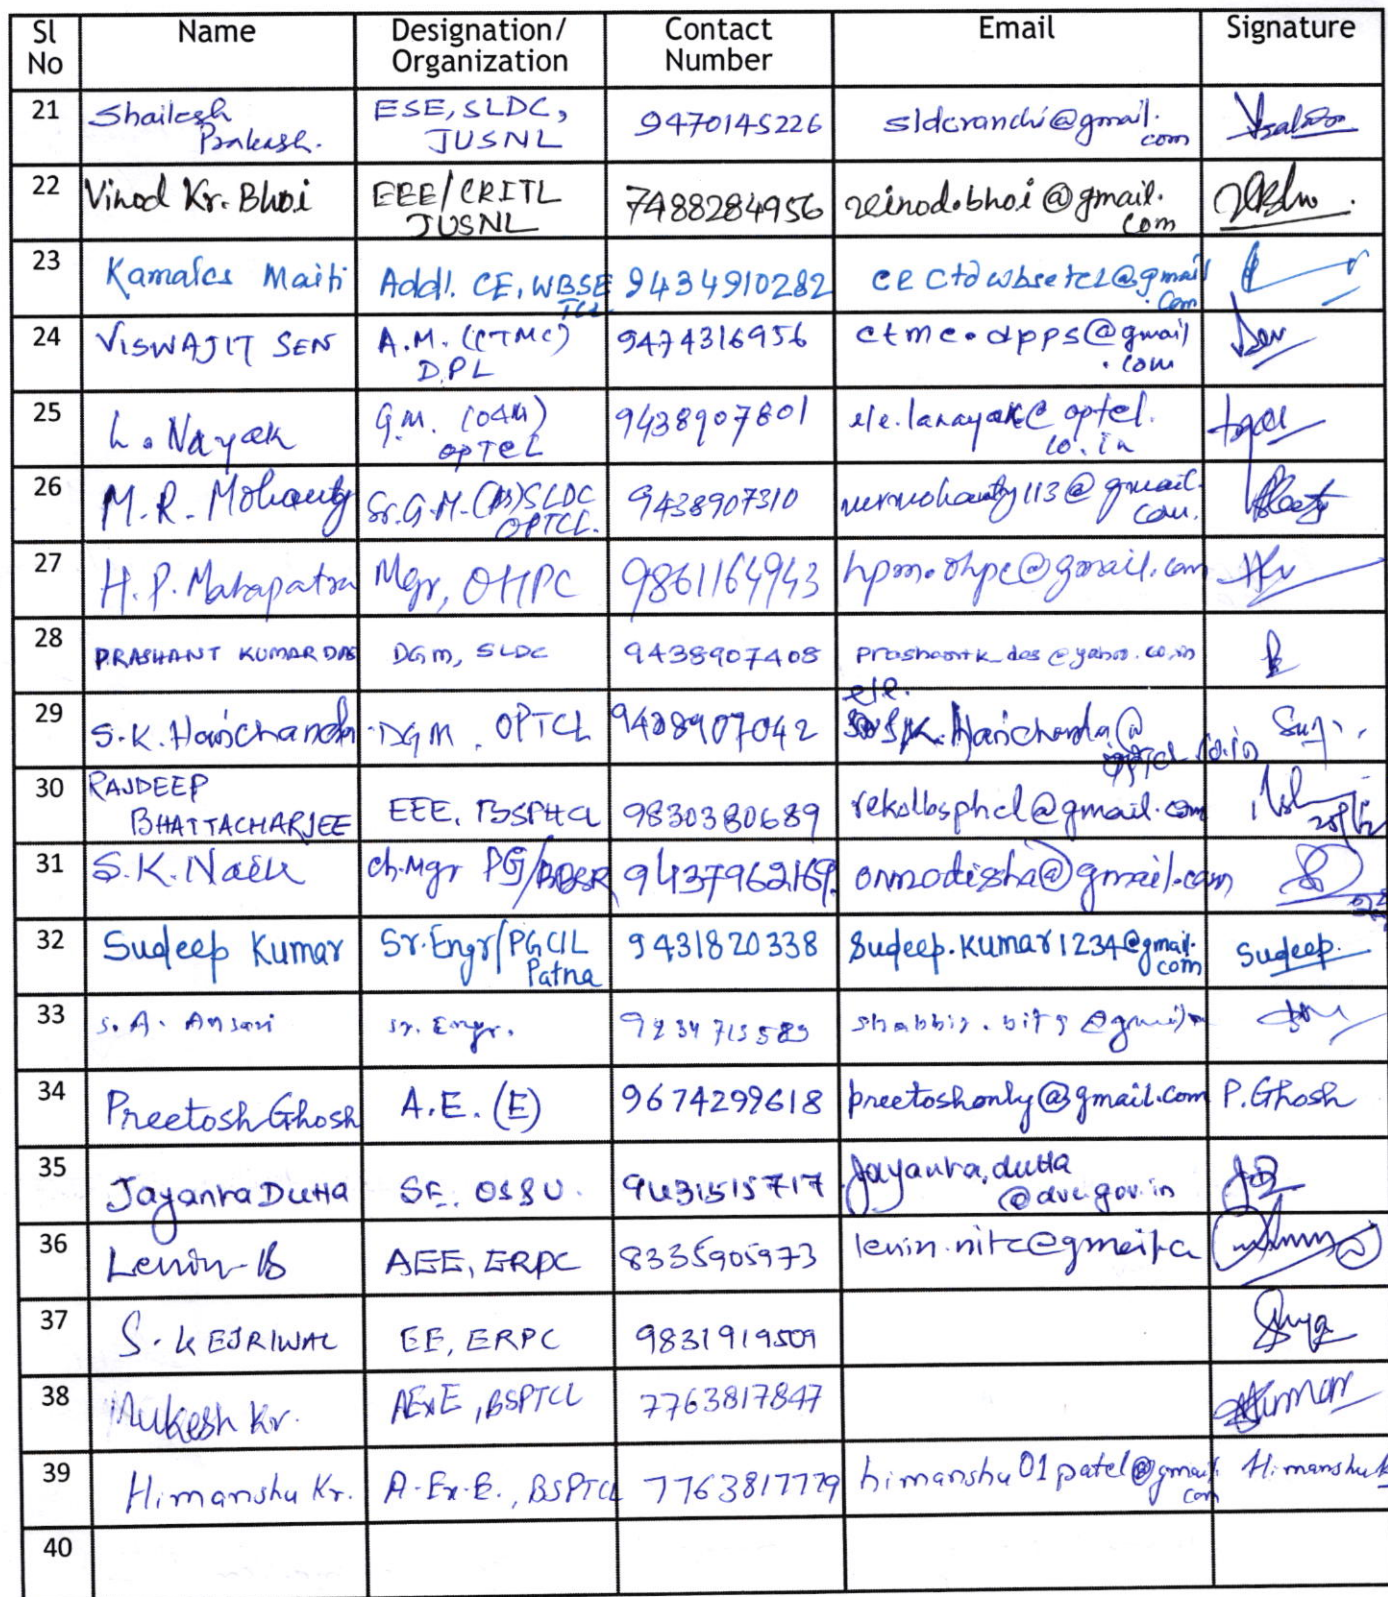 Sl No Name Designation/ Organization Contact Number Email Signature
21 Shailesh Prakash. ESE, SLDC, JUSNL 9470145226 sldcranchi@gmail.com
22 Vinod Kr. Bhoi EEE/CRITL JUSNL 7488284956 vinod.bhoi@gmail.com
23 Kamales Maiti Addl. CE, WBSETCL 9434910282 cectdwbsetcl@gmail.com
24 VISWAJIT SEN A.M. (CTMC) D.PL 9474316956 ctmc.dpps@gmail.com
25 L. Nayak G.M. (O&M) OPTCL 9438907801 ele.lanayak@optcl.co.in
26 M.R. Mohanty Sr.G.M. SLDC OPTCL. 9438907310 mrmohanty113@gmail.com.
27 H.P. Mahapatra Mgr, OHPC 9861164943 hpm.ohpc@gmail.com
28 PRASHANT KUMAR DAS DGM, SLDC 9438907408 prashantk_das@yahoo.co.in
29 S.K. Harichandan DGM, OPTCL 9438907042
30 RAJDEEP BHATTACHARJEE EEE, BSPHCL 9830380689 rekolbsphcl@gmail.com
31 S.K. Naik Ch.Mgr PG/ 9437962169 onmodisha@gmail.com
32 Sudeep Kumar Sr.Engr/PGCIL Patna 9431820338 Sudeep.kumar1234@gmail.com Sudeep.
33 S. A. Ansari Sr. Engr.
34 Preetosh Ghosh A.E. (E) 9674299618 preetoshonly@gmail.com P.Ghosh
35 Jayanta Dutta SE, OS&U. 9431515717 Jayanta.dutta@dvc.gov.in
36 Lenin B AEE, ERPC 8335905973
37 S. KEJRIWAL EE, ERPC 9831919509
38 Mukesh Kr. AExE, BSPTCL 7763817847
39 Himanshu Kr. A.Ex.E., BSPTCL 7763817779 himanshu01patel@gmail.com Himanshu
40